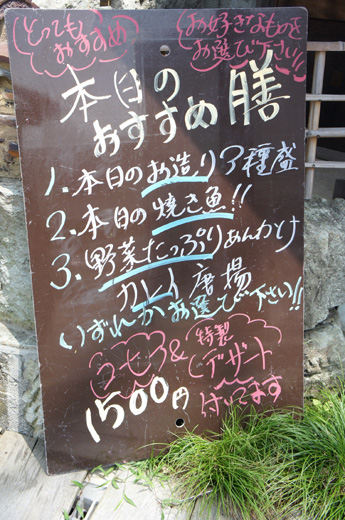 とってもおすすめ
お好きなものをお選び下さい!!
本日のおすすめ膳
1. 本日のお造り3種盛
2. 本日の焼き魚!!
3. 野菜たっぷりあんかけ
カレイ唐揚
いずれかお選び下さい!!
コーヒー& 特製デザート付いてます
1500円